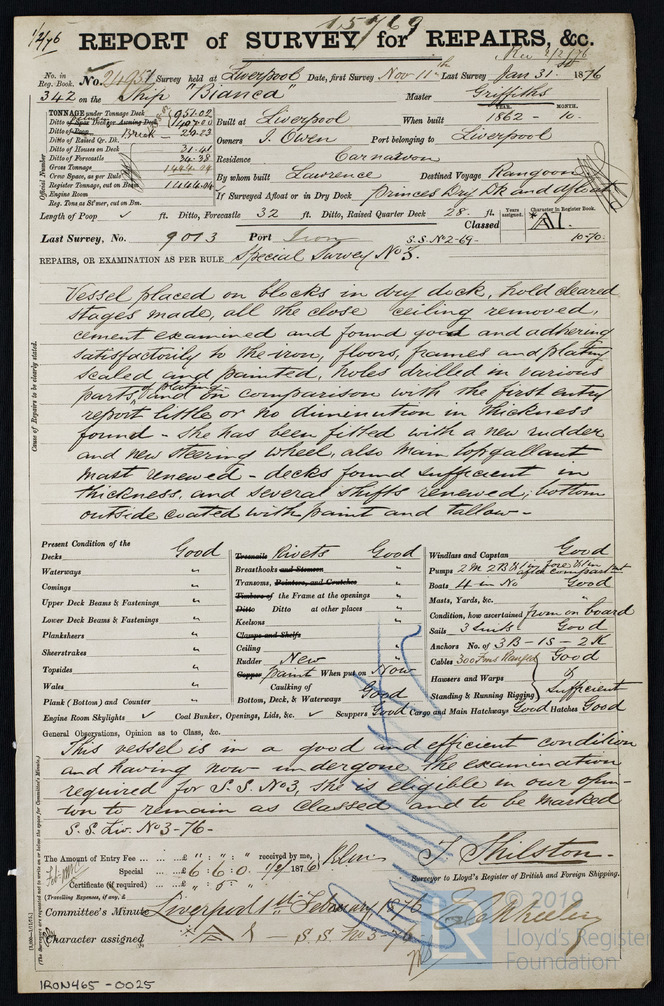 1/2/76
15769
REPORT of SURVEY for REPAIRS, &c.
Rec 2/2/76
No. in Reg. Book. No. 24951 Survey held at Liverpool Date, first Survey Nov 11th Last Survey Jan 31st 1876
342 on the Ship "Bianca" Master Griffiths
TONNAGE under Tonnage Deck 951.02
Ditto of Spar Deck or Awning Deck 407.00
Ditto of Poop Break 20.23
Ditto of Raised Qr. Dk.
Ditto of Houses on Deck 31.41
Ditto of Forecastle 34.38
Gross Tonnage 1444.04
Crew Space, as per Rule
Register Tonnage, cut on Beam 1444.04
Engine Room
Reg. Tons as St'mer, cut on Bm.
Official Number
Built at Liverpool When built YEAR. 1862 - MONTH. 10.
Owners J. Owen Port belonging to Liverpool
Residence Carnarvon
By whom built Lawrence Destined Voyage Rangoon
If Surveyed Afloat or in Dry Dock Princes Dry Dk and Afloat
Length of Poop ✓ ft. Ditto, Forecastle 32 ft. Ditto, Raised Quarter Deck 28. ft.
Classed Years assigned. Character in Register Book. A1.
Last Survey, No. 9013 Port Iron S.S. No 2-69- 10-70.
REPAIRS, OR EXAMINATION AS PER RULE Special Survey No 3.
Cause of Repairs to be clearly stated.
Vessel placed on blocks in dry dock, hold cleared
stages made, all the close ceiling removed,
cement examined and found good and adhering
satisfactorily to the iron, floors, frames and plating
scaled and painted, holes drilled in various
parts, of plating and on comparison with the first entry
report little or no diminution in thickness
found - She has been fitted with a new rudder
and new steering wheel, also main topgallant
mast renewed - decks found sufficient in
thickness, and several shifts renewed, bottom
outside coated with paint and tallow -
Present Condition of the
Decks Good
Waterways "
Comings "
Upper Deck Beams & Fastenings "
Lower Deck Beams & Fastenings "
Planksheers "
Sheerstrakes "
Topsides "
Wales "
Plank (Bottom) and Counter "
Engine Room Skylights ✓ Coal Bunker, Openings, Lids, &c. ✓ Scuppers Good Cargo and Main Hatchways Good Hatches Good
Treenails Rivets Good
Breasthooks and Stemson "
Transoms, Pointers, and Crutches "
Timbers of the Frame at the openings "
Ditto Ditto at other places "
Keelsons "
Clamps and Shelfs
Ceiling "
Rudder New "
Copper Paint When put on Now
Caulking of Bottom, Deck, & Waterways Good
Windlass and Capstan Good
Pumps
Boats 4 in No Good
Masts, Yards, &c. "
Condition, how ascertained from on board
Sails 3 Suits Good
Anchors No. of 3B - 1S - 2K
Cables 300 Fms Ranged Good
Hawsers and Warps
Standing & Running Rigging Sufficient
General Observations, Opinion as to Class, &c.
This vessel is in a good and efficient condition
and having now undergone the examination
required for S.S. No 3, she is eligible in our opin-
ion to remain as classed and to be marked
S.S. Liv. No 3-76-
The Amount of Entry Fee ... ... £ " : " : " received by me,
Special ... £ 6 : 6 : 0. 1/2/1876
Certificate (if required) ... £ " : 5 : "
(Travelling Expenses, if any, £
T. Shilston.
Surveyor to Lloyd's Register of British and Foreign Shipping.
Committee's Minute Liverpool 1st February 1876
Character assigned A 1 S.S. No 3-76
© 2019
LR
Lloyd's Register
Foundation
IRON465-0025